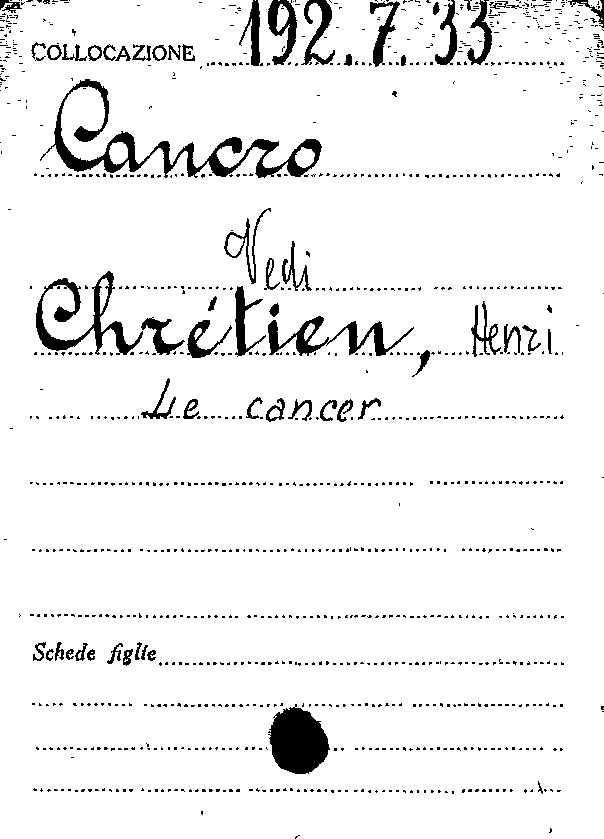 COLLOCAZIONE 192.7.33
Cancro
Vedi
Chrétien, Henri
Le cancer
Schede figlie